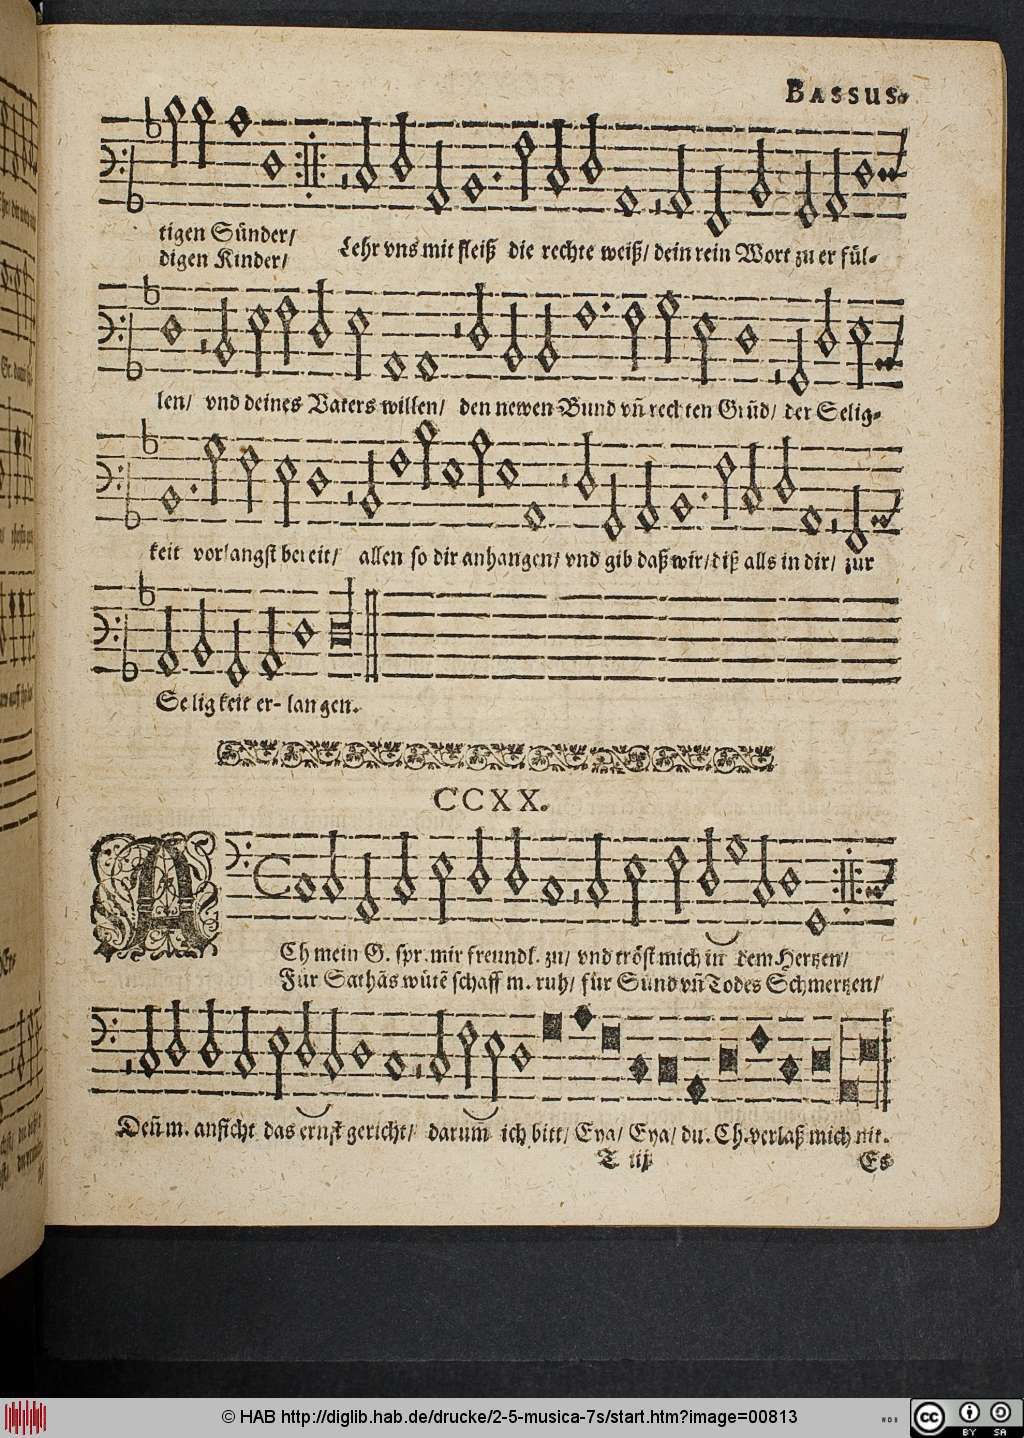 BASSUS.
tigen Sünder/
digen Kinder/
Lehr vns mit fleiß die rechte weiß/ dein rein Wort zu er fül-
len/ vnd deines Vaters willen/ den newen Bund vñ rechten Grũd/ der Selig-
keit vorlangst bereit/ allen so dir anhangen/ vnd gib daß wir/ diß alls in dir/ zur
Seligkeit er- langen.
CCXX.
ACh mein G. spr. mir freundl. zu/ vnd tröst mich in dem Hertzen/
Für Sathãs wütẽ schaff m. ruh/ für Sünd vñ Todes Schmertzen/
Deñ m. ansicht das ernst gericht/ darum ich bitt/ Eya/ Eya/ du. Ch. verlaß mich nit.
T iij
Es
© HAB http://diglib.hab.de/drucke/2-5-musica-7s/start.htm?image=00813
WDB
cc
BY SA